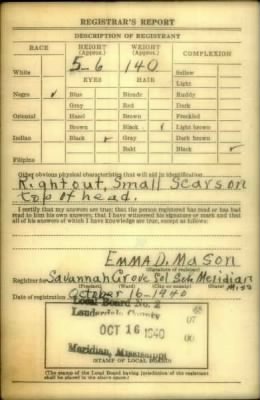 REGISTRAR'S REPORT
DESCRIPTION OF REGISTRANT
RACE HEIGHT (Approx.) WEIGHT (Approx.) COMPLEXION
5-6 140
White EYES HAIR Sallow
Light
Negro ✓ Blue Blonde Ruddy
Gray Red Dark
Oriental Hazel Brown Freckled
Brown Black ✓ Light brown
Indian Black ✓ Gray Dark brown
Bald Black ✓
Filipino
Other obvious physical characteristics that will aid in identification
Right out, Small Scars on
top of head.
I certify that my answers are true; that the person registered has read or has had
read to him his own answers; that I have witnessed his signature or mark and that
all of his answers of which I have knowledge are true, except as follows:
Emma D. Mason
(Signature of registrar)
Registrar for Savannah Grove Meridian Miss
(Precinct) (Ward) (City or county) (State)
Date of registration October 16-1940
Local Board No. 2
Lauderdale County
OCT 16 1940
Meridian, Mississippi
(STAMP OF LOCAL BOARD)
(The stamp of the Local Board having jurisdiction of the registrant
shall be placed in the above space.)